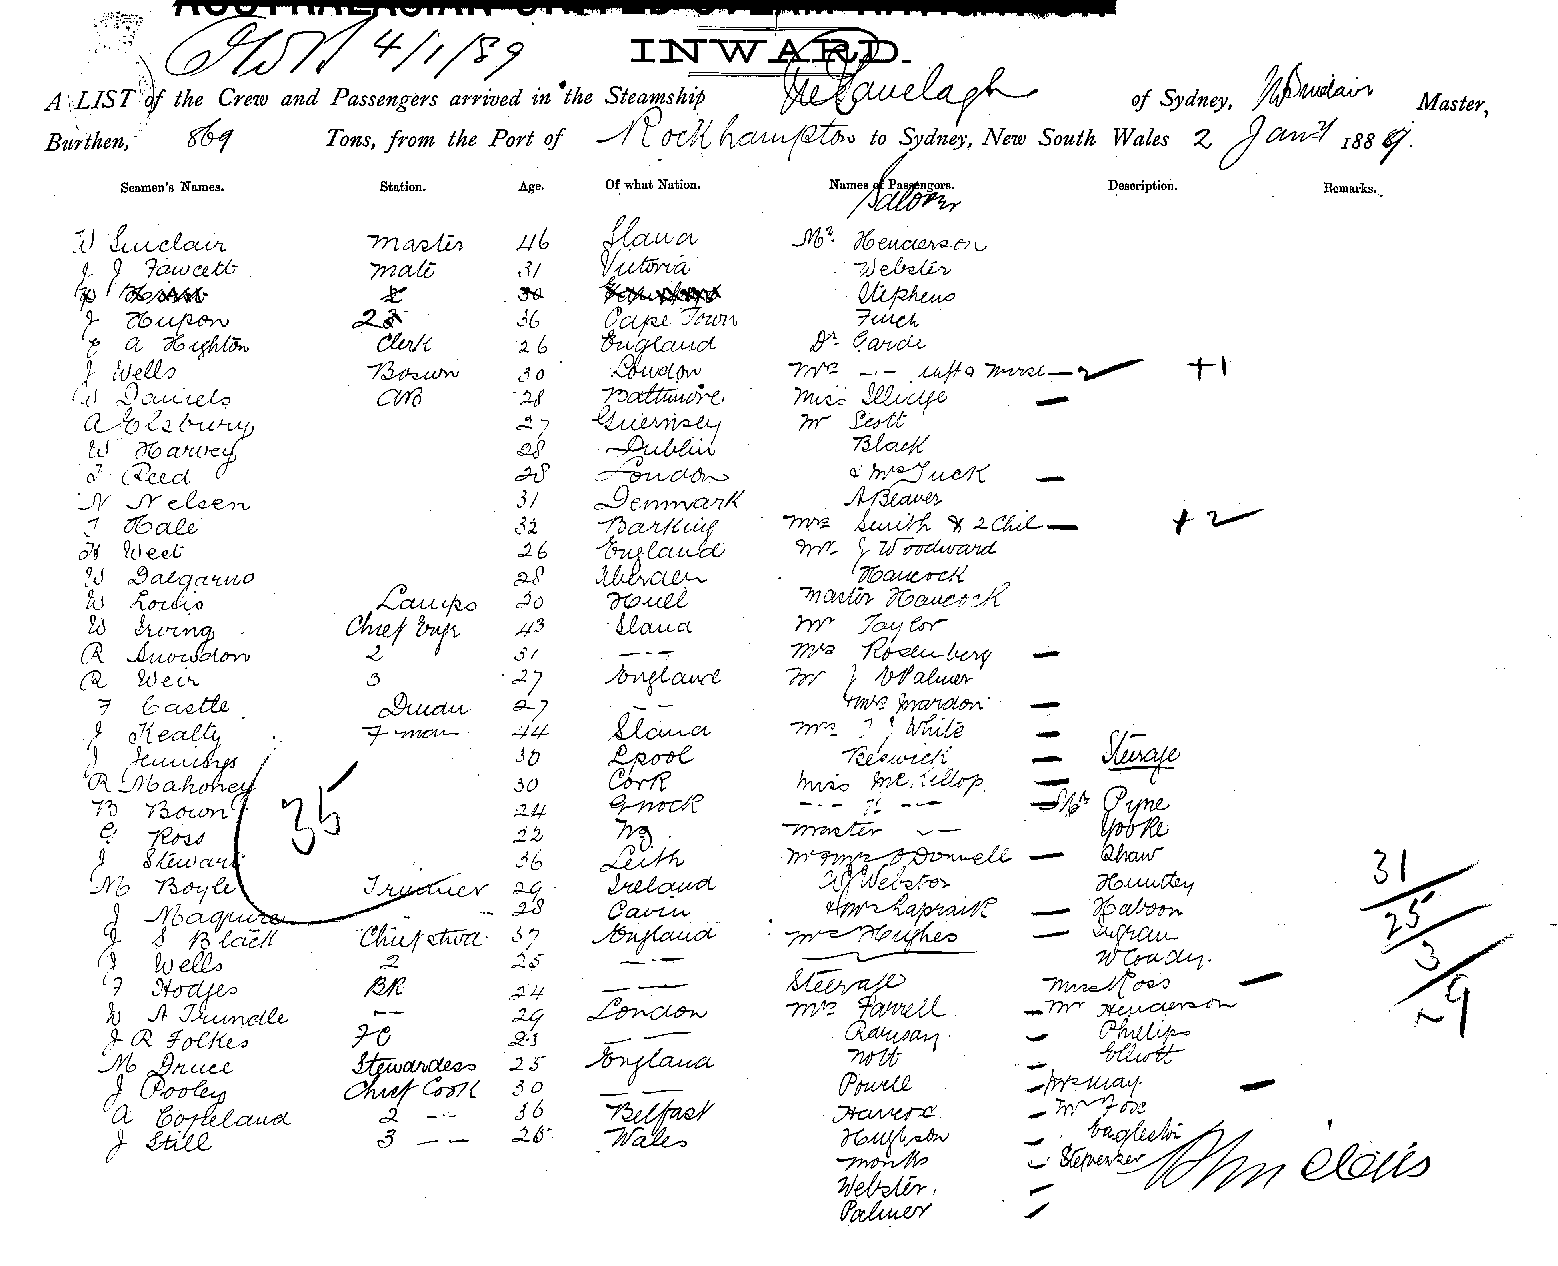 AUSTRALASIAN UNITED STEAM NAVIGATION
4/1/89
INWARD.
A LIST of the Crew and Passengers arrived in the Steamship of Sydney, W Sinclair Master,
Burthen, 869 Tons, from the Port of Rockhampton to Sydney, New South Wales 2 Jany 1889.
Seamen's Names. Station. Age. Of what Nation. Names of Passengers. Description. Remarks.
Saloon
W Sinclair Master 46 Mr. Henderson
J J Fawcett Mate 31 Victoria Webster
30 Stephens
J Hupon 2 36 Cape Town Finch
A Highton Clerk 26 England Dr Garde
J Wells Bosun 30 London Mrs -- & Nurse - 2 +1
W Daniels AB 28 Baltimore Miss Illidge -
A Elsbury 27 Guernsey Mr Scott
W Harvey 28 Dublin Black
Reed 28 London & Mrs Tuck -
N Nelsen 31 Denmark A Beaver
T Hale 32 Barking Mrs Smith & 2 Chil - +2
H West 26 England Mr J Woodward
W Dalgarno 28 Aberdeen Hancock
W Louis Lamps 20 Hull Master Hancock
W Irving Chief Engr 43 Mr Taylor
R Snowdon 2 31 -- Mrs Rosenberg -
R Weir 3 27 England Mr J Palmer
F Castle 27 -- Mrs Mardon -
J Kealty F man 44 Mrs T J White -
J Jennings 30 Lpool Beswick - Steerage
R Mahoney 30 Cork Miss McKillop -
B Bown 24 Gnock -- " -- - Mr Pyne
G Ross 22 NZ Master -- Yooke
35
J Stewart 36 Leith Mr & Mrs O'Donnell - Shaw
M Boyle Trimmer 29 Ireland W Webster Huntley
J Maguire 28 Cavin & Mrs Lapraik -
J S Black Chief Stwd 37 England Mrs Hughes -
J Wells 2 25 --
F Hodges BR 24 -- Steerage Mrs Ross -
W A Trundle -- 29 London Mrs Farrell - Mr Henderson
J R Folkes FC 23 -- Ramsay - Phillips
M Druce Stewardess 25 England Nott - Elliott
J Pooley Chief Cook 30 -- Powell - Mrs May -
A Copeland 2 -- 36 Belfast - Mr Fox
J Still 3 -- 25 Wales -
Monks -
Webster -
Palmer -
31
25
3